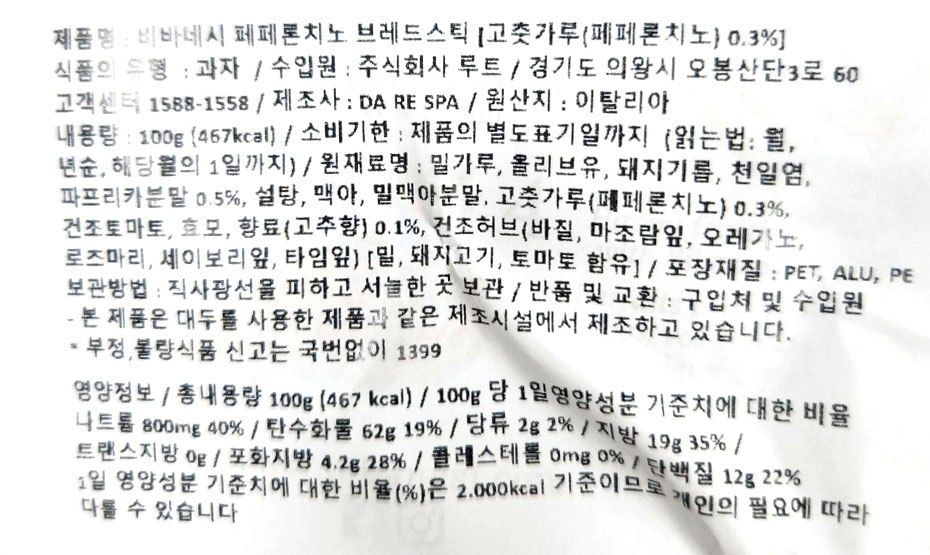 제품명 : 비바네시 페페론치노 브레드스틱 [고춧가루(페페론치노) 0.3%]
식품의 유형 : 과자 / 수입원 : 주식회사 루트 / 경기도 의왕시 오봉산단3로 60
고객센터 1588-1558 / 제조사 : DA RE SPA / 원산지 : 이탈리아
내용량 : 100g (467kcal) / 소비기한 : 제품의 별도표기일까지 (읽는법: 월,
년순, 해당월의 1일까지) / 원재료명 : 밀가루, 올리브유, 돼지기름, 천일염,
파프리카분말 0.5%, 설탕, 맥아, 밀맥아분말, 고춧가루(페페론치노) 0.3%,
건조토마토, 효모, 향료(고추향) 0.1%, 건조허브(바질, 마조람잎, 오레가노,
로즈마리, 세이보리잎, 타임잎) [밀, 돼지고기, 토마토 함유] / 포장재질 : PET, ALU, PE
보관방법 : 직사광선을 피하고 서늘한 곳 보관 / 반품 및 교환 : 구입처 및 수입원
- 본 제품은 대두를 사용한 제품과 같은 제조시설에서 제조하고 있습니다.
* 부정,불량식품 신고는 국번없이 1399
영양정보 / 총내용량 100g (467 kcal) / 100g 당 1일영양성분 기준치에 대한 비율
나트륨 800mg 40% / 탄수화물 62g 19% / 당류 2g 2% / 지방 19g 35% /
트랜스지방 0g / 포화지방 4.2g 28% / 콜레스테롤 0mg 0% / 단백질 12g 22%
1일 영양성분 기준치에 대한 비율(%)은 2.000kcal 기준이므로 개인의 필요에 따라
다를 수 있습니다